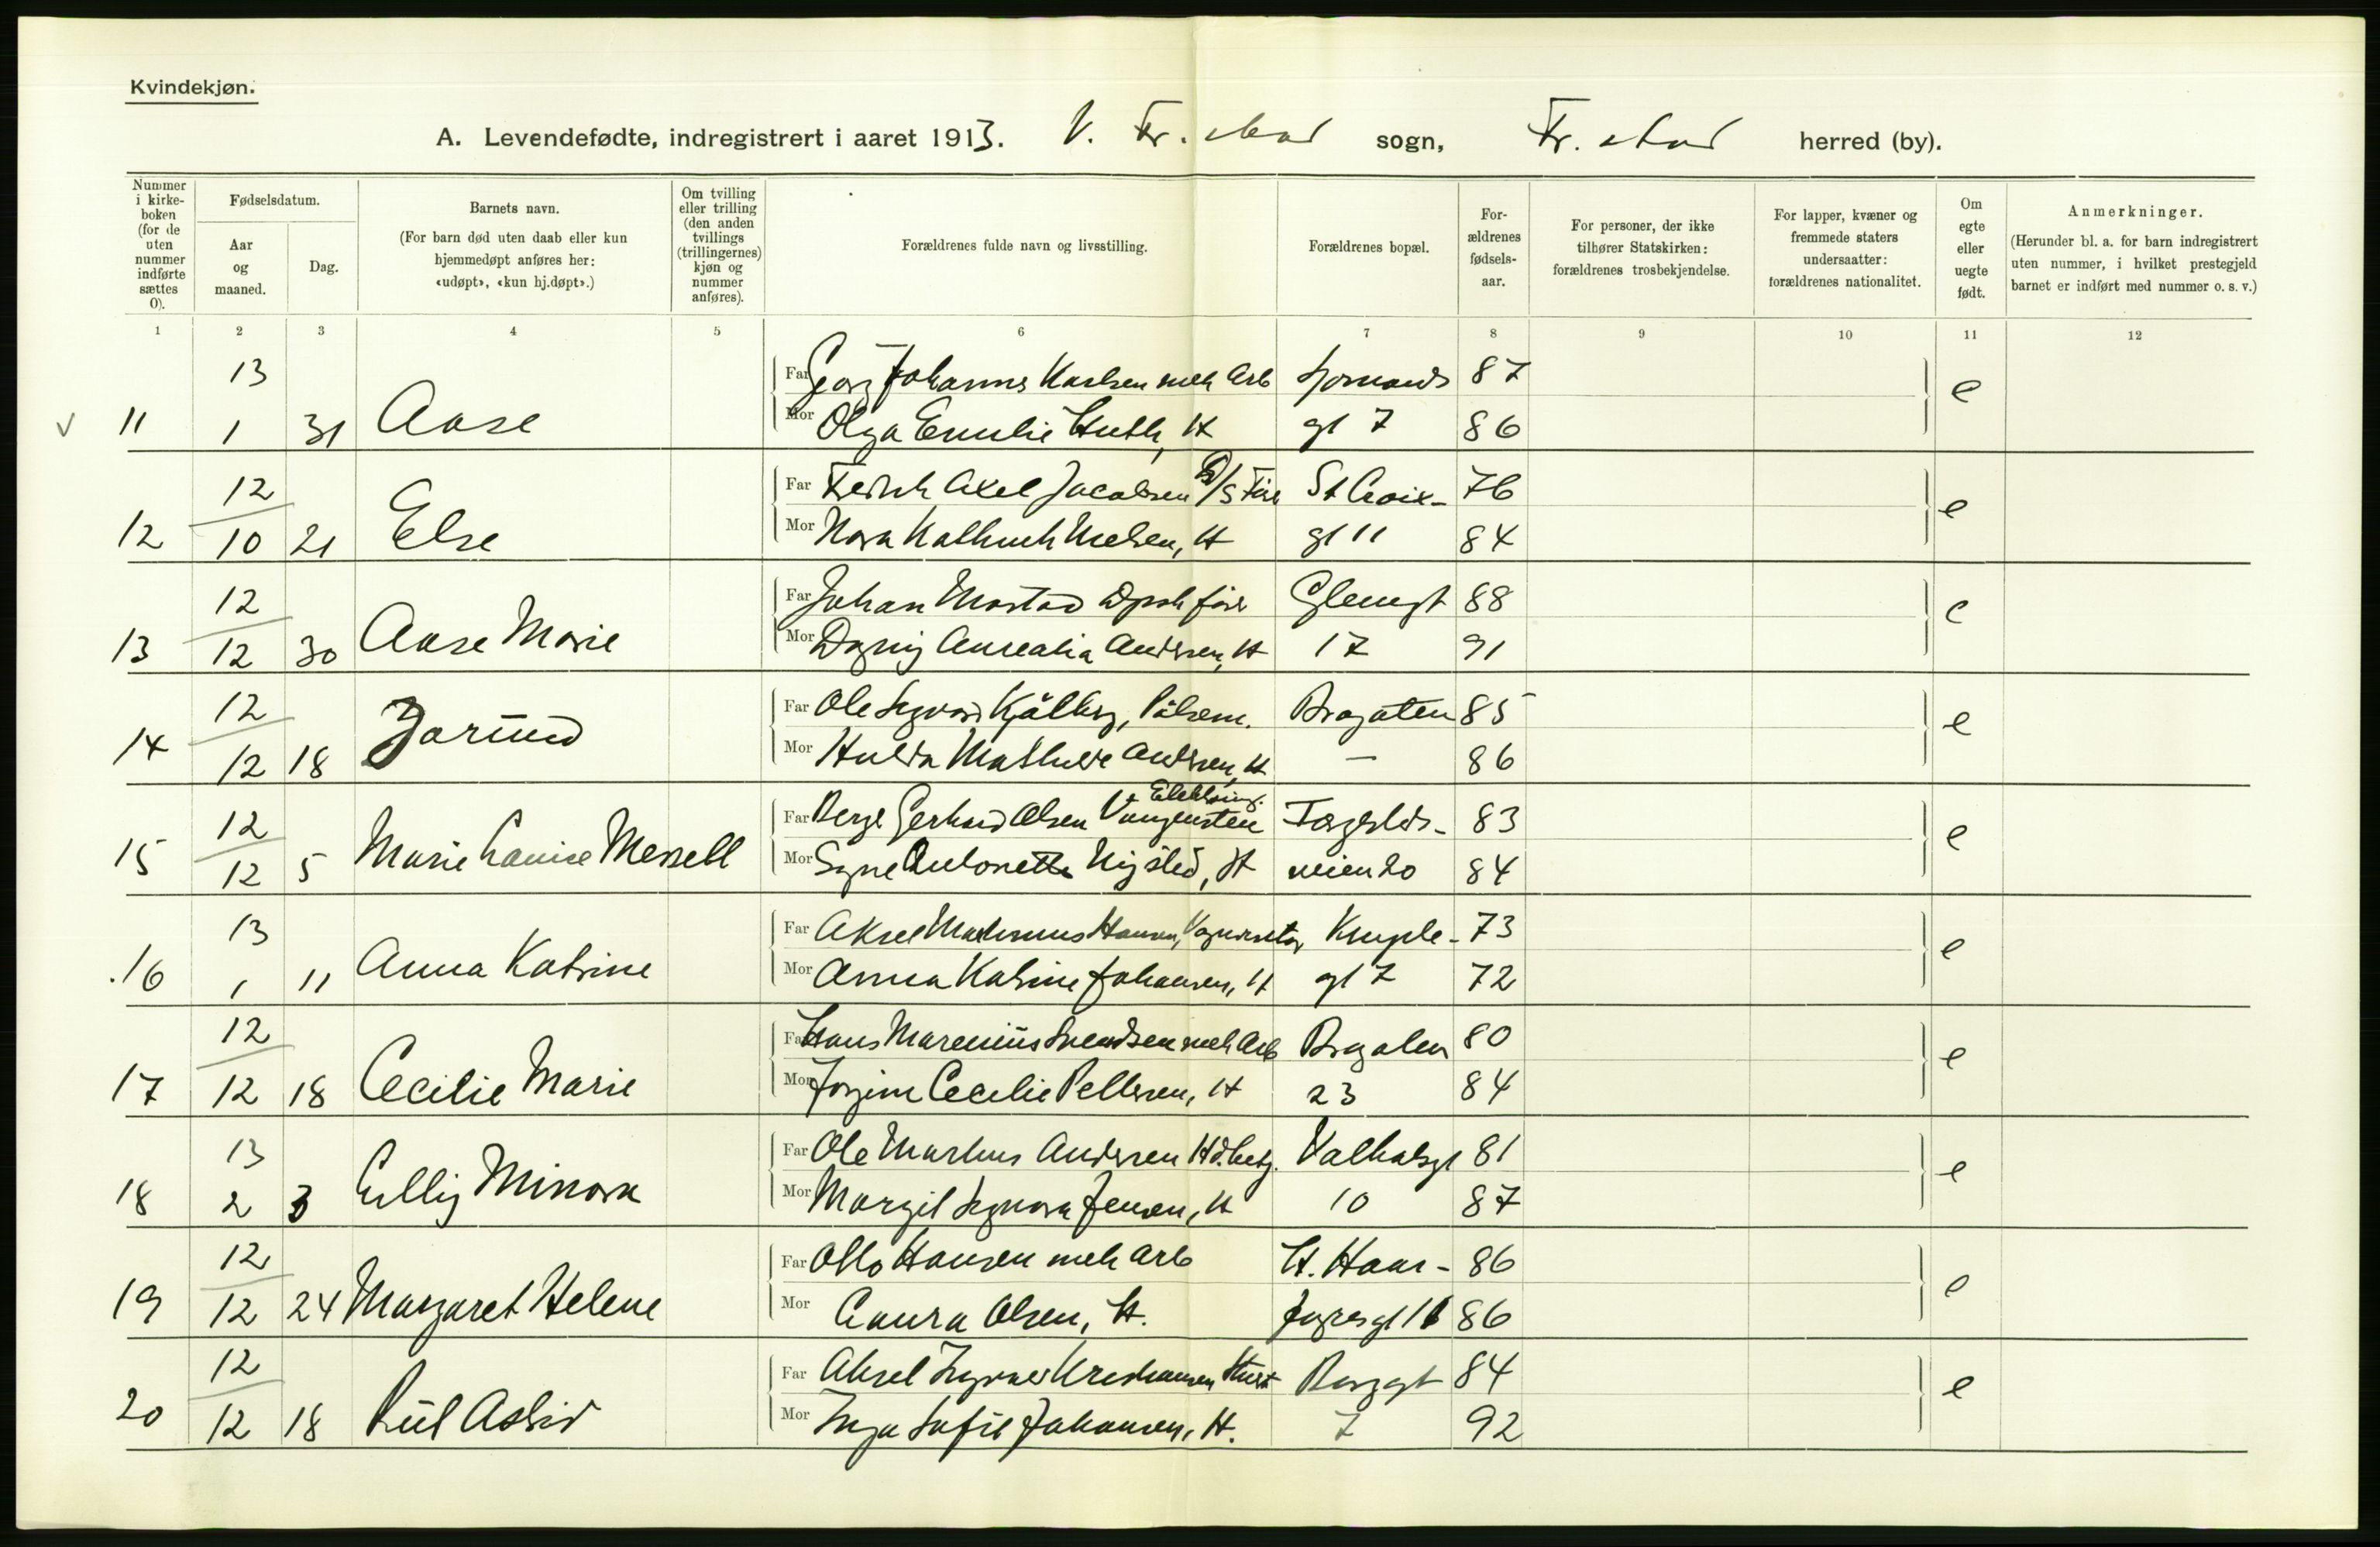 Kvindekjøn.
A. Levendefødte, indregistrert i aaret 1913. V. Fr.stad sogn, Fr.stad herred (by).
Nummer i kirke-boken (for de uten nummer indførte sættes 0).
Fødselsdatum.
Aar og maaned.
Dag.
Barnets navn.
(For barn død uten daab eller kun hjemmedøpt anføres her: «udøpt», «kun hj.døpt».)
Om tvilling eller trilling (den anden tvillings (trillingernes) kjøn og nummer anføres).
Forældrenes fulde navn og livsstilling.
Forældrenes bopæl.
For-ældrenes fødsels-aar.
For personer, der ikke tilhører Statskirken: forældrenes trosbekjendelse.
For lapper, kvæner og fremmede staters undersaatter: forældrenes nationalitet.
Om egte eller uegte født.
Anmerkninger.
(Herunder bl. a. for barn indregistrert uten nummer, i hvilket prestegjeld barnet er indført med nummer o. s. v.)
1 2 3 4 5 6 7 8 9 10 11 12
13 Far Georg Johannes Karlsen mek Arb 87
11 1 31 Aase Mor Olga Emilie H gt 7 86 e
12 Far Axel Jacobsen St Croix- 76
12 10 21 Else Mor Nora Nielsen, H gt 11 84 e
12 Far Johan Mostad Glemgt 88
13 12 30 Aase Marie Mor Dagny Andersen, H 17 91 e
12 Far Ole Sigvard Kjølberg, Pølsem. Brogaten 85
14 12 18 Jorund Mor Hulda Mathilde Andersen, H — 86 e
12 Far Gerhard Olsen Vangensten 83
15 12 5 Marie Louise Mor Signe Antonette Nygård, H veien 20 84 e
13 Far Aksel Hansen, 73
16 1 11 Anna Katrine Mor Anna Katrine Johansen, H gt 7 72 e
12 Far Hans Marenius Svendsen mek Arb Brogaten 80
17 12 18 Cecilie Marie Mor Cecilie Pettersen, H 23 84 e
13 Far Ole Markus Andersen Valhalsgt 81
18 2 3 Minora Mor Margit Signora Jensen, H 10 87 e
12 Far Otto Hansen mek Arb St. Haar- 86
19 12 24 Margaret Helene Mor Laura Olsen, H. fagresgt 86 e
12 Far Aksel Kristiansen Borggt 84
20 12 18 Rut Astrid Mor Inga Sofie Johansen, H. 7 92 e